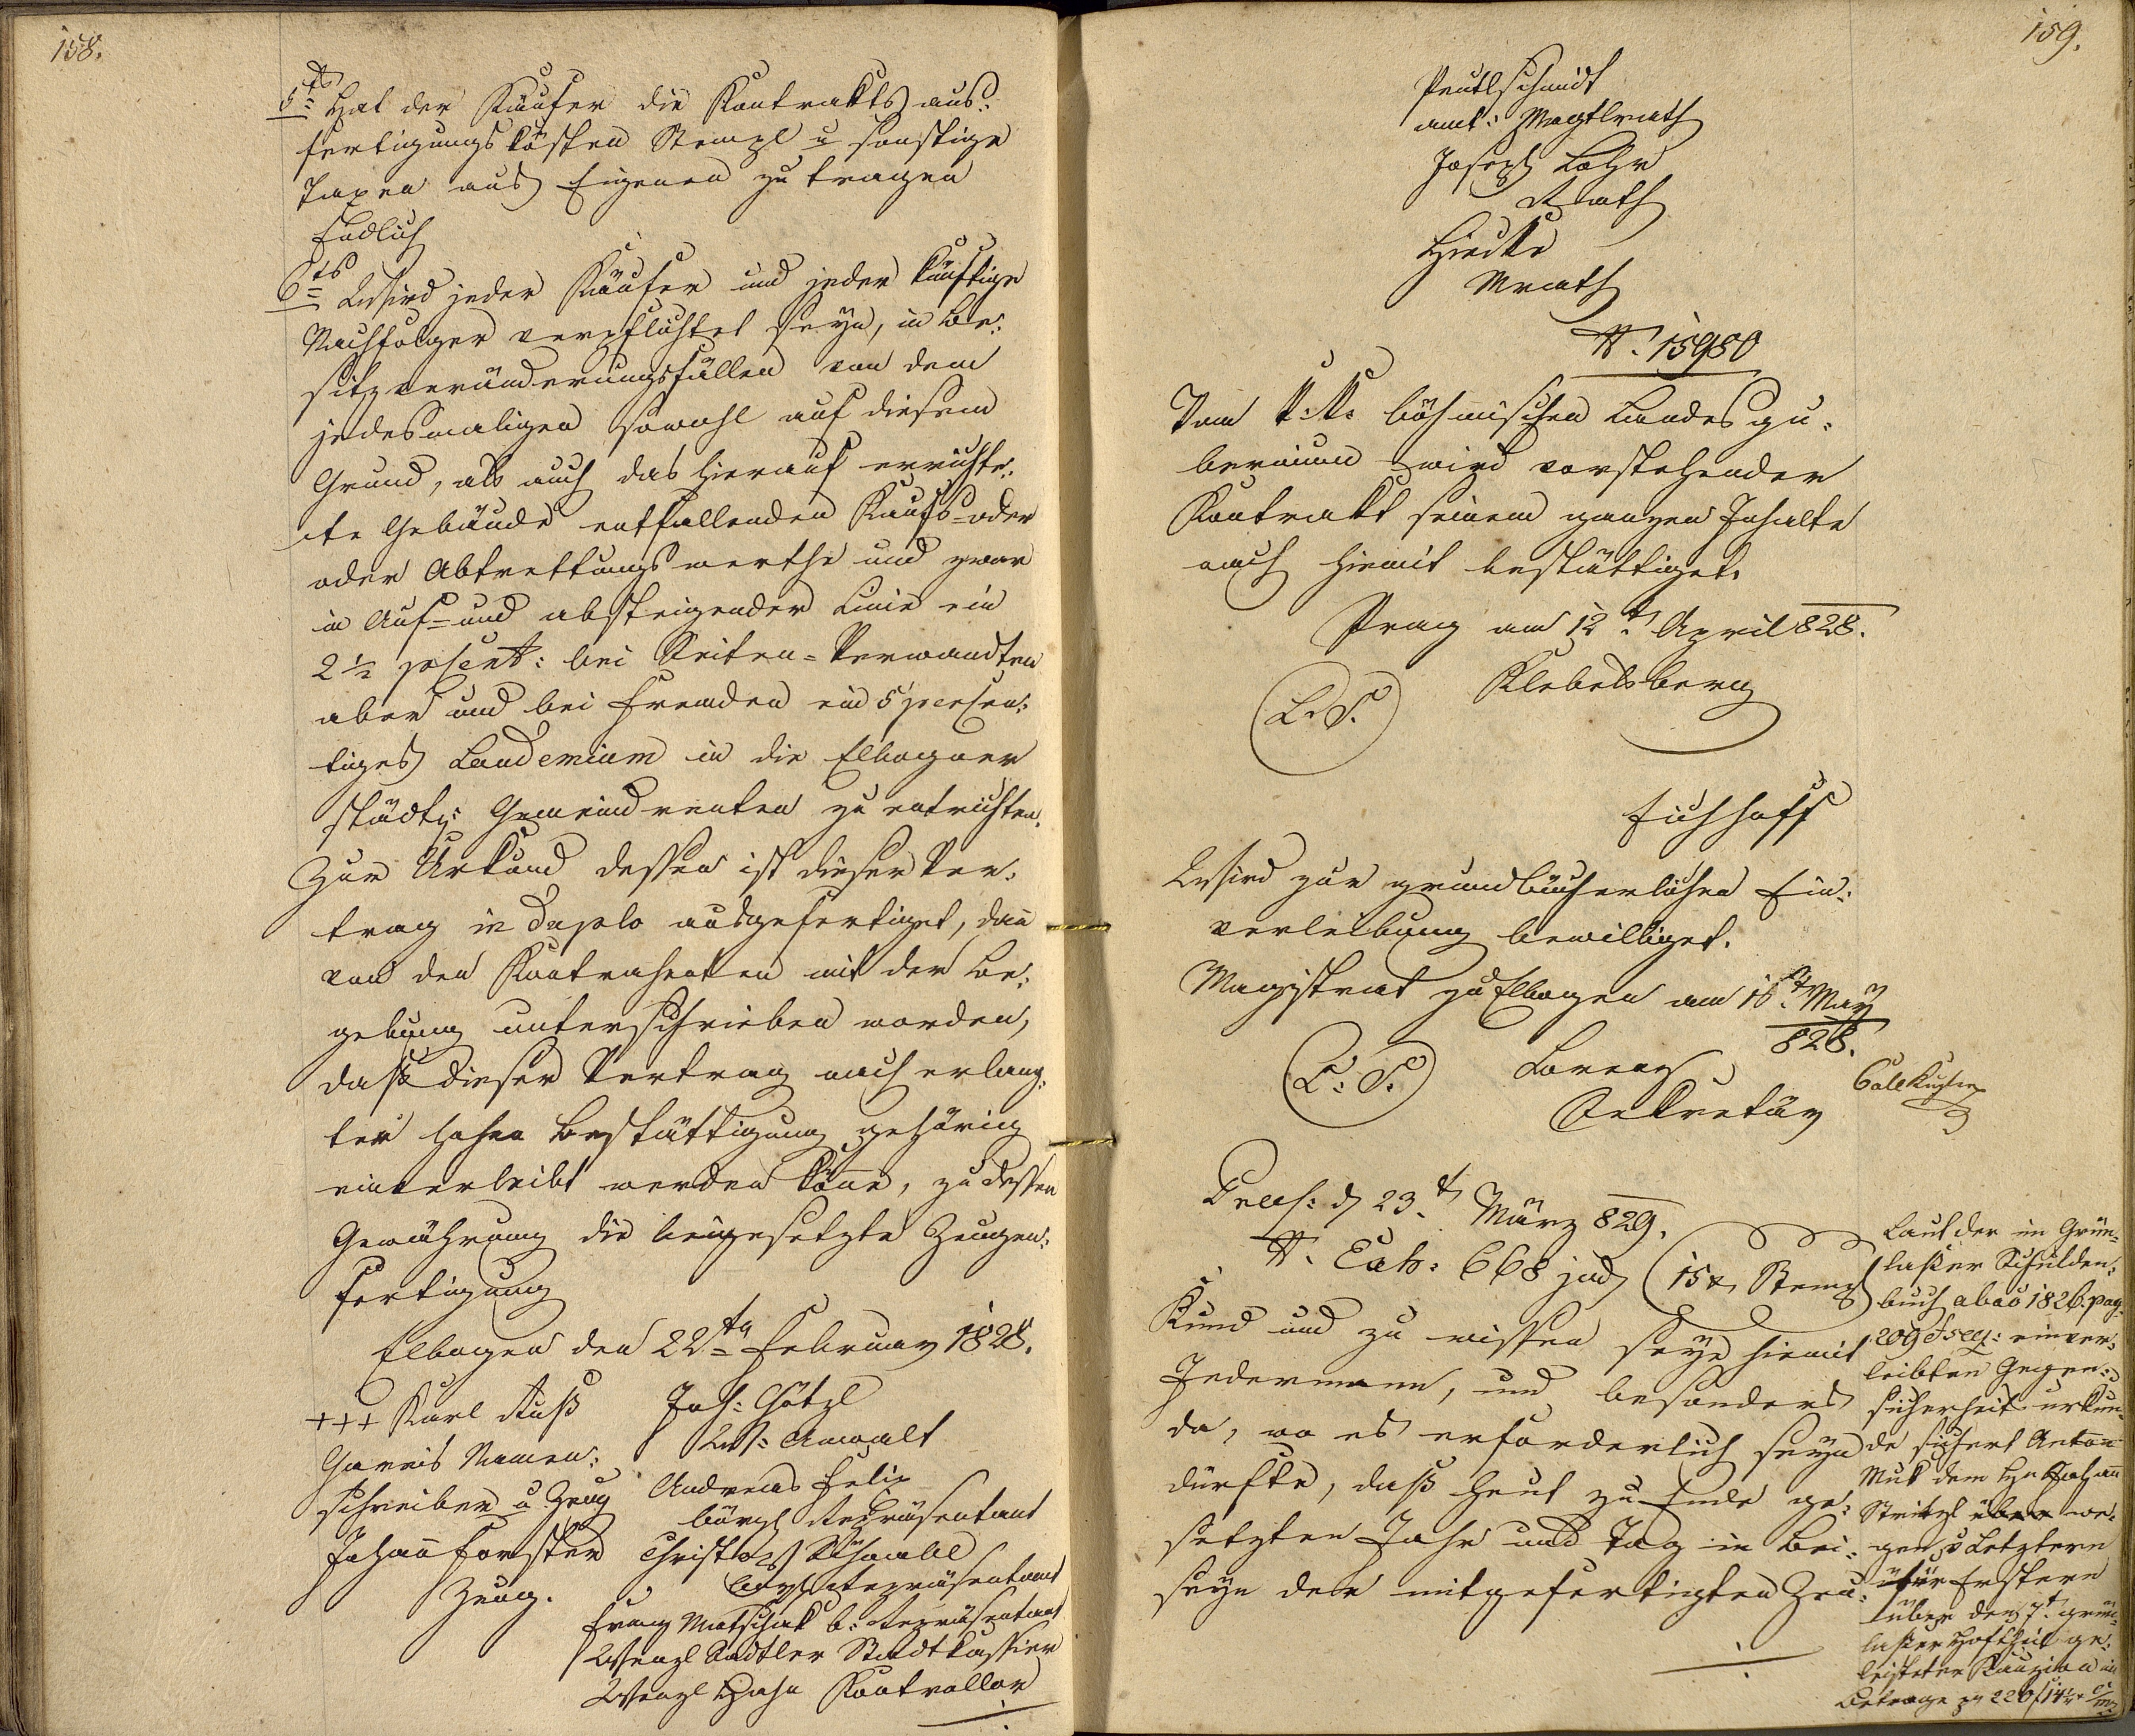 158.
5tens Hat der Käufer die Kontrakts aus:
fertigungskösten Stempl u sonstige
Taxen aus Eigenen zu tragen
Endlich
6tens Wird jeder Käufer und jeder künftige
Nachfolger verpflichtet seyn, in Be:
sitzveränderungsfällen von dem
jedesmaligen sowohl auf diesem
Grund, als auch das hierauf errichte:
te Gebäude entfallenden Kaufs=oder
oder Abtrettungswerthe und zwar
in Auf= und absteigender Linie ein
2 1/2 psent: bei Seiten=Verwandten
aber und bei Fremden ein 5 persen:
tiges Laudemium in die Elbogner
städts: Gemeindrenten zu entrichten.
Zur Urkund dessen ist dieser Ver:
trag in Duplo ausgefertiget, dan
von den Kontrahenten mit der Be:
gebung unterschrieben worden,
daß dieser Vertrag nach erlang:
ter hohen Bestättigung gehörig
einverleibt werden köne, zu dessen
Gewährung die beigesetzte Zeugen:
fertigung
Elbogen den 22ten Februar 1828.
+++ Karl Ruß
Namen:
schreiber u Zeug
Johan Forster
Zeug.
Joh: Götzl
Anwalt
Andreas Felix
bürgl Repräsentant
Christoph
bürgl Repräsentant
Franz Matschak b: Repräsentant
Wenzl Sadtler Stadtkassier
Wenzl Hahn Kontrollor
159.
Peutlschmidt
amt: Magtlrath
Joseph Lohr
Rath
Mrath
N. 15980
Vom k:k: böhmischen Landesgu:
bernium wird vorstehender
Kontrakt seinem ganzen Inhalte
nach hiemit bestättiget.
Prag am 12t April 828.
L. S.
Klebelsberg
Eichhoff
Wird zur grundbücherlichen Ein:
verleibung bewilliget.
Magistrat zu Elbogen am 16t May
828.
L. S.
Lorenz
Sekretär
Praes: d 23t März 829.
N. Exh: 668 jud (15 x Stempl)
Kund und zu wissen seye hiemit
Jedermann, und besonders
da, wo es erforderlich seyn
dürfte, daß heut zu Ende ge:
setzten Jahr und Tag in Bei:
seyn der mitgefertigten Zeu:
Laut der im Grün:
laßer Schulden:
buch abao 1826. pag.
209 & seq: einver:
leibten Gegen:
sicherheits urkun:
de sichert Anton
Muk dem Hn Johann
we:
gen v Letztern
für Erstern
über den 7t grün:
laßer Hofthäil ge:
leisteten Kauzion im
Betrage zu 220 f 14